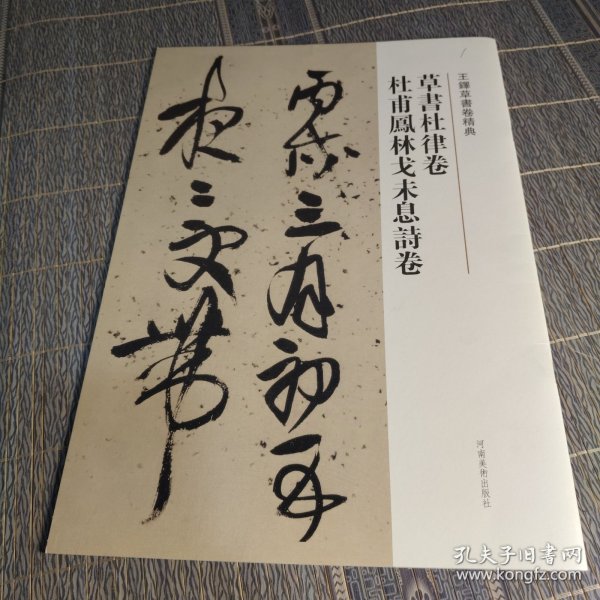 王鐸草書卷精典
草書杜律卷
杜甫鳳林戈未息詩卷
河南美術出版社
丙戌三月初五
夜二更帶
孔夫子旧书网
www.kongfz.com